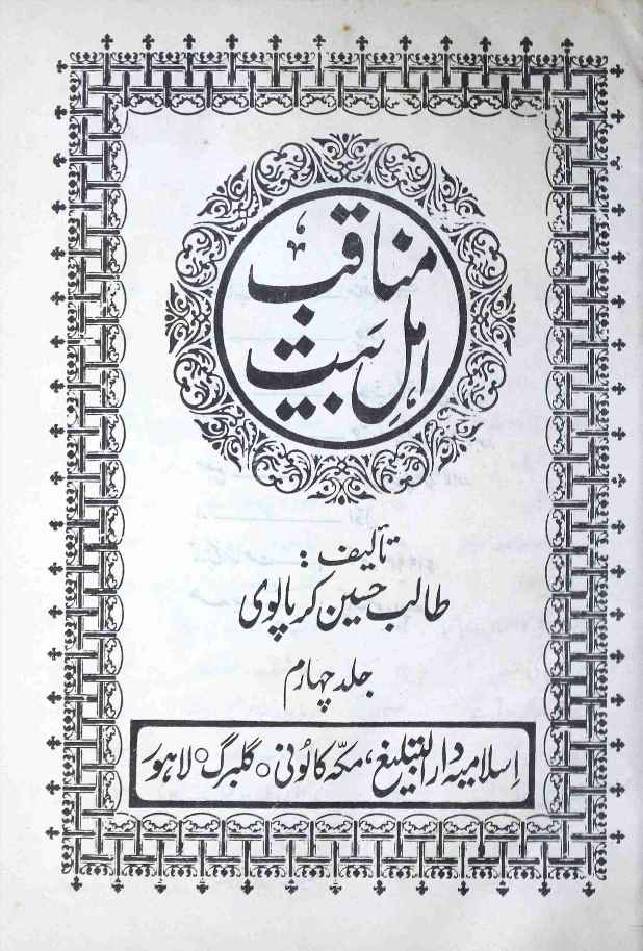 مناقب
اہلِ بَیت
تألیف:
طالب حسین کرپالوی
جلد چہارم
اِسلامیہ دارالتبلیغ، مکّہ کالونی ○ گلبرگ ○ لاہور